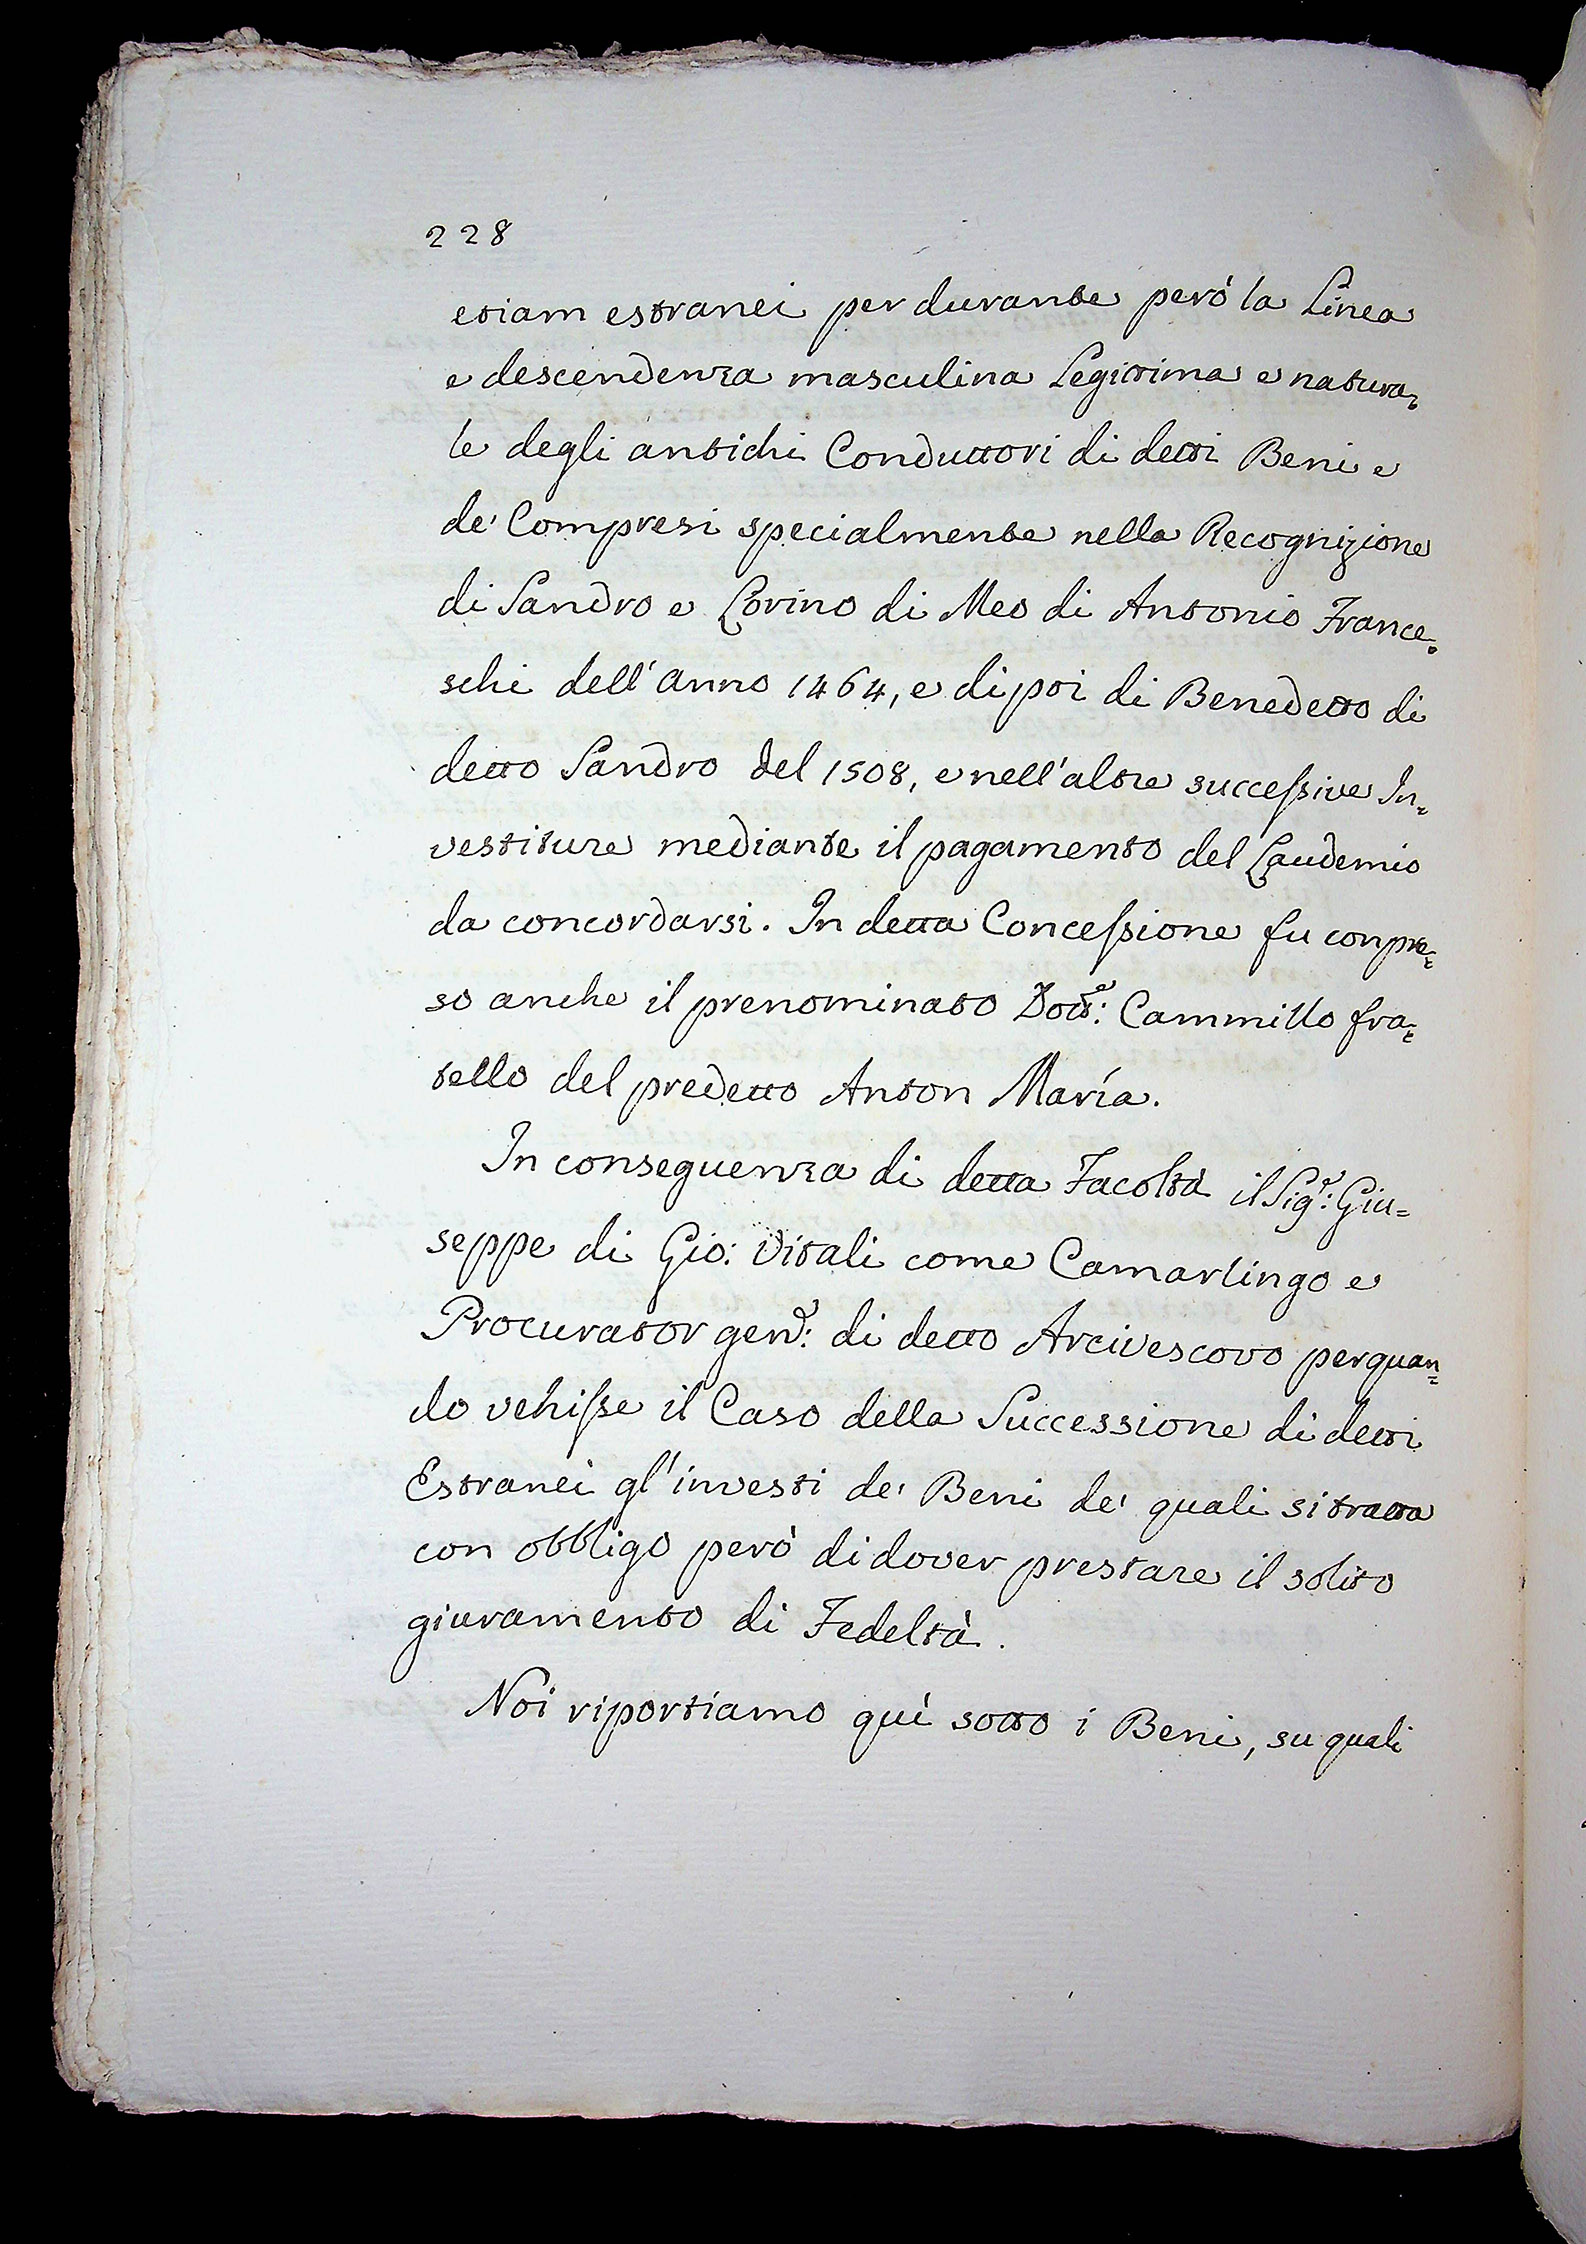 228
etiam estranei per durante però la Linea
e descendenza masculina Legittima e natura-
le degli antichi Conduttori di detti Beni e
de' Compresi specialmente nella Recognizione
di Sandro e Lorino di Meo di Antonio France-
schi dell'anno 1464, e di poi di Benedetto di
detto Sandro del 1508, e nell'altre successive In-
vestiture mediante il pagamento del Laudemio
da concordarsi. In detta Concessione fu conpre-
so anche il prenominato Dott.e: Cammillo fra-
tello del predetto Anton María.
In conseguenza di detta Facoltà il Sig.r: Giu=
seppe di Gio: Vitali come Camarlingo e
Procurator gen.l: di detto Arcivescovo per quan-
do venisse il Caso della Successione di detti
Estranei gl'investì de' Beni de' quali si tratta
con obbligo però di dover prestare il solito
giuramento di Fedeltà.
Noi riportiamo quì sotto i Beni, su quali